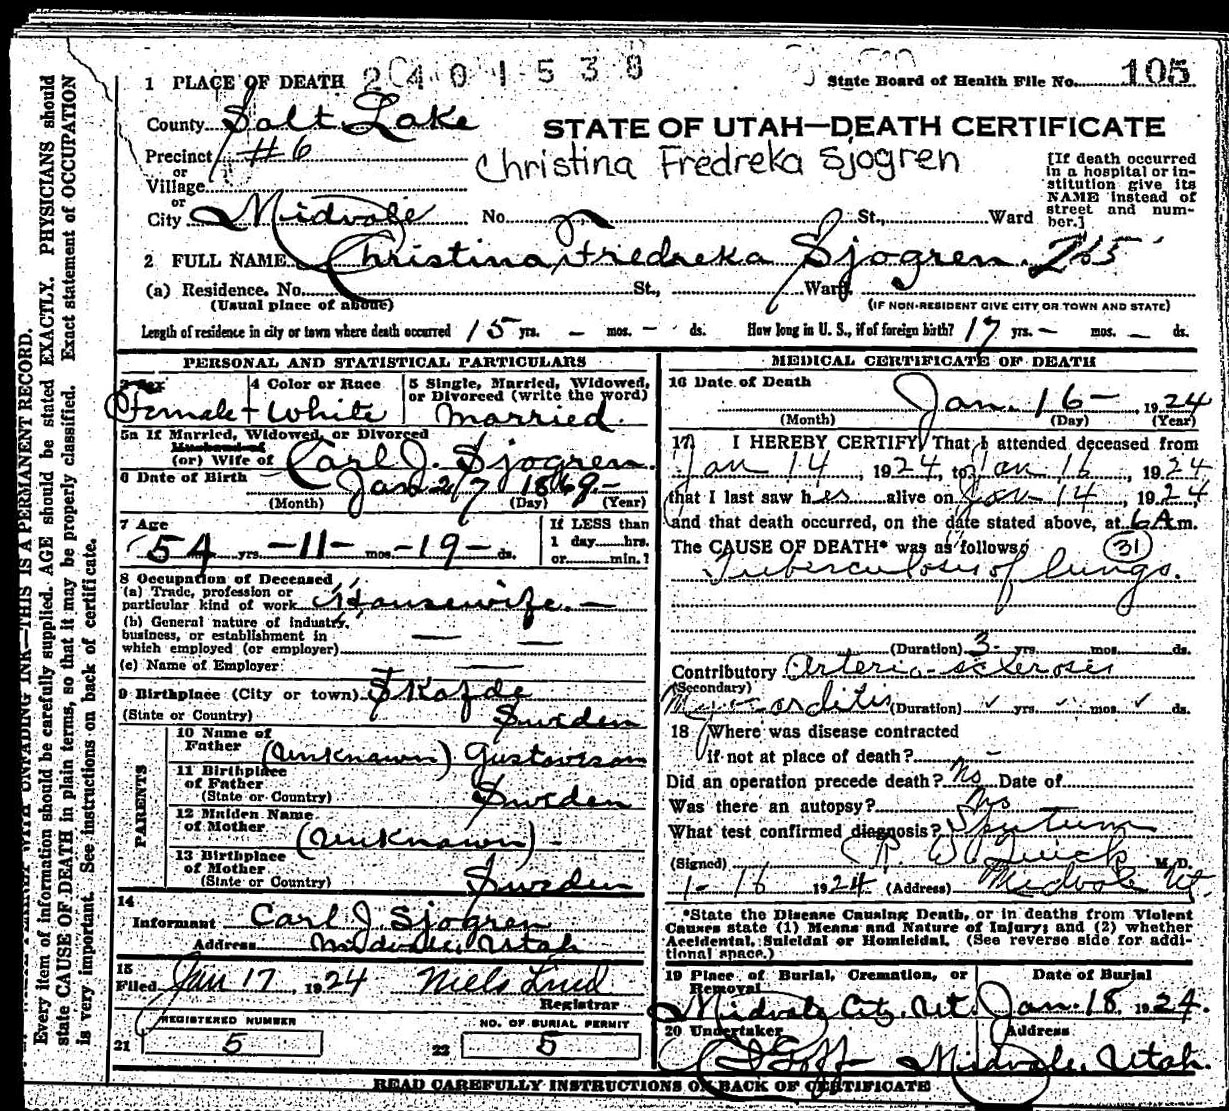 1 PLACE OF DEATH 2401538
State Board of Health File No. 105
County Salt Lake
STATE OF UTAH—DEATH CERTIFICATE
Precinct #6
Christina Fredreka Sjogren
or
Village
or
City Midvale No. St., Ward
[If death occurred
in a hospital or in-
stitution give its
NAME instead of
street and num-
ber.]
2 FULL NAME Christina Fredreka Sjogren. 265
(a) Residence. No. St., Ward.
(Usual place of abode) (IF NON-RESIDENT GIVE CITY OR TOWN AND STATE)
Length of residence in city or town where death occurred 15 yrs. — mos. — ds. How long in U. S., if of foreign birth? 17 yrs. — mos. — ds.
PERSONAL AND STATISTICAL PARTICULARS
3 Sex Female
4 Color or Race White
5 Single, Married, Widowed,
or Divorced (write the word)
Married.
5a If Married, Widowed, or Divorced
Husband of
(or) Wife of Carl J. Sjogren.
6 Date of Birth Jan 27 1869—
(Month) (Day) (Year)
7 Age
54 yrs. —11— mos. —19— ds.
If LESS than
1 day hrs.
or min.?
8 Occupation of Deceased
(a) Trade, profession or
particular kind of work Housewife. —
(b) General nature of industry,
business, or establishment in
which employed (or employer) — —
(c) Name of Employer —
9 Birthplace (City or town) Skofde
(State or Country) Sweden
PARENTS
10 Name of
Father (Unknown) Gustavson
11 Birthplace
of Father
(State or Country) Sweden
12 Maiden Name
of Mother (Unknown) -
13 Birthplace
of Mother
(State or Country) Sweden
14
Informant Carl J Sjogren
Address Midvale, Utah
15
Filed Jan 17, 1924 Niels Lind
Registrar
REGISTERED NUMBER
21 5
NO. OF BURIAL PERMIT
22 5
MEDICAL CERTIFICATE OF DEATH
16 Date of Death
Jan. 16—, 1924
(Month) (Day) (Year)
17 I HEREBY CERTIFY, That I attended deceased from
Jan 14, 1924, to Jan 16, 1924,
that I last saw her alive on Jan 14, 1924,
and that death occurred, on the date stated above, at 6 A m.
The CAUSE OF DEATH* was as follows: 31
Tuberculosis of lungs.
(Duration) 3- yrs. mos. ds.
Contributory Arterio-sclerosis
(Secondary)
Myocarditis (Duration) yrs. mos. ds.
18 Where was disease contracted
if not at place of death? —
Did an operation precede death? No Date of
Was there an autopsy? No
What test confirmed diagnosis? Sputum
(Signed) M.D.
1-16 1924 (Address) Midvale Ut.
*State the Disease Causing Death, or in deaths from Violent
Causes state (1) Means and Nature of Injury; and (2) whether
Accidental, Suicidal or Homicidal. (See reverse side for addi-
tional space.)
19 Place of Burial, Cremation, or
Removal
Date of Burial
Midvale City, Ut. Jan. 18, 1924.
20 Undertaker Address
Goff Midvale, Utah.
READ CAREFULLY INSTRUCTIONS ON BACK OF CERTIFICATE
WITH UNFADING INK—THIS IS A PERMANENT RECORD.
Every item of information should be carefully supplied. AGE should be stated EXACTLY. PHYSICIANS should
state CAUSE OF DEATH in plain terms, so that it may be properly classified. Exact statement of OCCUPATION
is very important. See instructions on back of certificate.